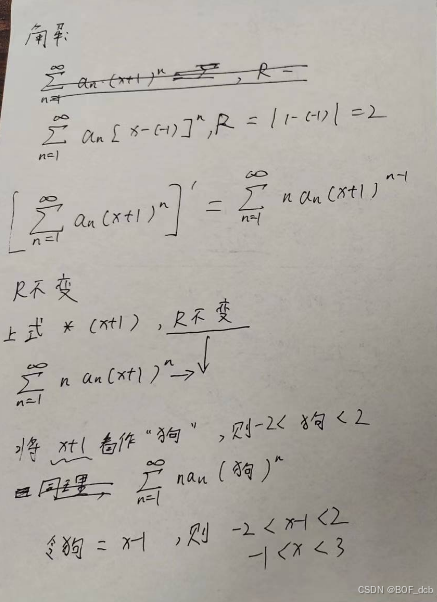 解:
∑_{n=1}^{∞} a_n·(x+1)^n , R =
∑_{n=1}^{∞} a_n [x-(-1)]^n, R = |1-(-1)| = 2
[∑_{n=1}^{∞} a_n(x+1)^n]' = ∑_{n=1}^{∞} n a_n(x+1)^{n-1}
R不变
上式 * (x+1), R不变
∑_{n=1}^{∞} n a_n(x+1)^n →
将 x+1 看作“狗”,则-2< 狗 <2
同理, ∑_{n=1}^{∞} n a_n (狗)^n
令狗 = x-1 ,则 -2 < x-1 < 2
-1 < x < 3
CSDN @BOF_dcb